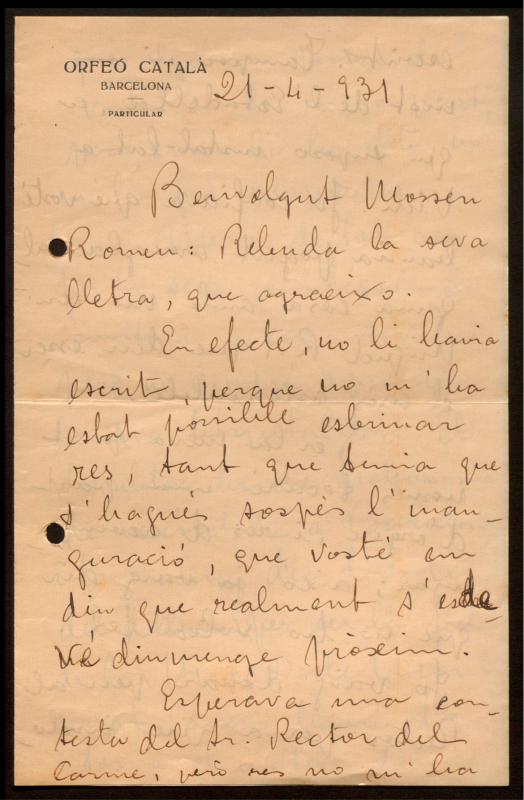 ORFEÓ CATALÀ
BARCELONA
PARTICULAR
21-4-931
Benvolgut Mossen
Romeu: Rebuda la seva
lletra, que agraeixo.
En efecte, no li havia
escrit, perque no m'ha
estat possible esbrinar
res, tant que temia que
s'hagués sospés l'inau-
guració, que vostè em
diu que realment s'esde
vé diumenge pròxim.
Esperava una con-
testa del Sr. Rector del
Carme, però res no m'ha